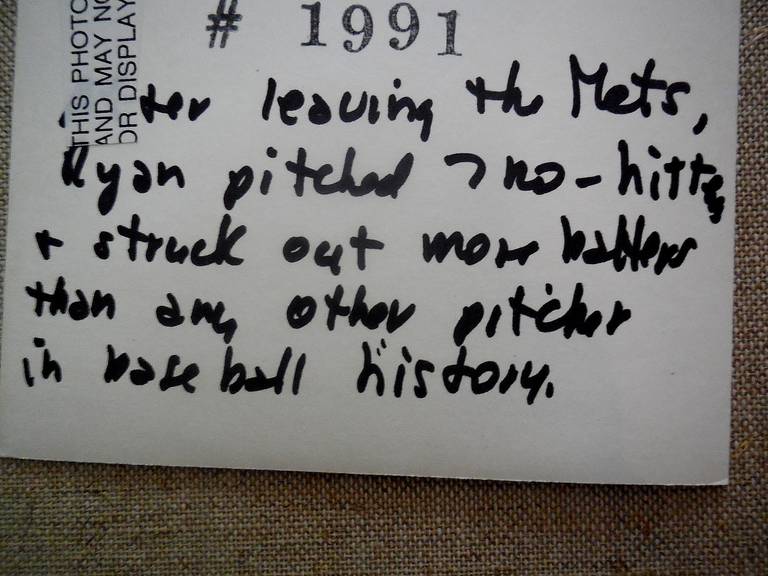 # 1991
THIS PHOTO
AND MAY NO
OR DISPLAY
ter leaving the Mets,
Ryan pitched 7 no-hitters
+ struck out more batters
than any other pitcher
in baseball history.